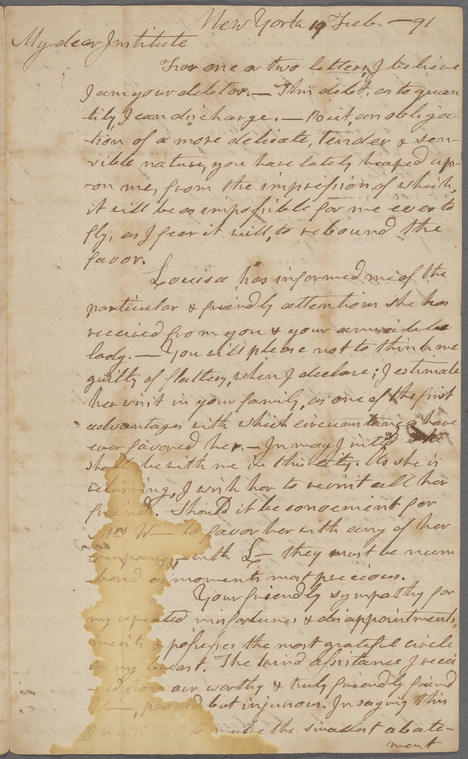 New York 19 Feb. — 91
My dear Institute
For one or two letters, I believe
I am your debtor. — This debt, as to quan
tity I can discharge. — But an obliga
tion of a more delicate, tender & sen
sible nature, you have lately heaped up
on me, from the impression of which,
it will be as impossible for me ever to
fly, as I fear it will, to rebound the
favor.
Louisa has informed me of the
particular & friendly attentions she has
received from you & your amiable
lady. — You will please not to think me
guilty of flattery, when I declare; I estimate
her visit in your family, as one of the first
advantages with which circumstances have
ever favored her. — In may I
should be with me in this City. As she is
returning, I wish her to revisit all her
friends. Should it be convenient for
Mrs W— to favor her with any of her
company, with L— they must be num
bered as moments most precious.
Your friendly sympathy for
my repeated misfortunes & disappointments,
merits & possesses the most grateful circle
in my breast. The kind assistance I recei
ved from our worthy & truly friendly friend
W—, proved but injurious. In saying this
I to make the smallest abate-
ment